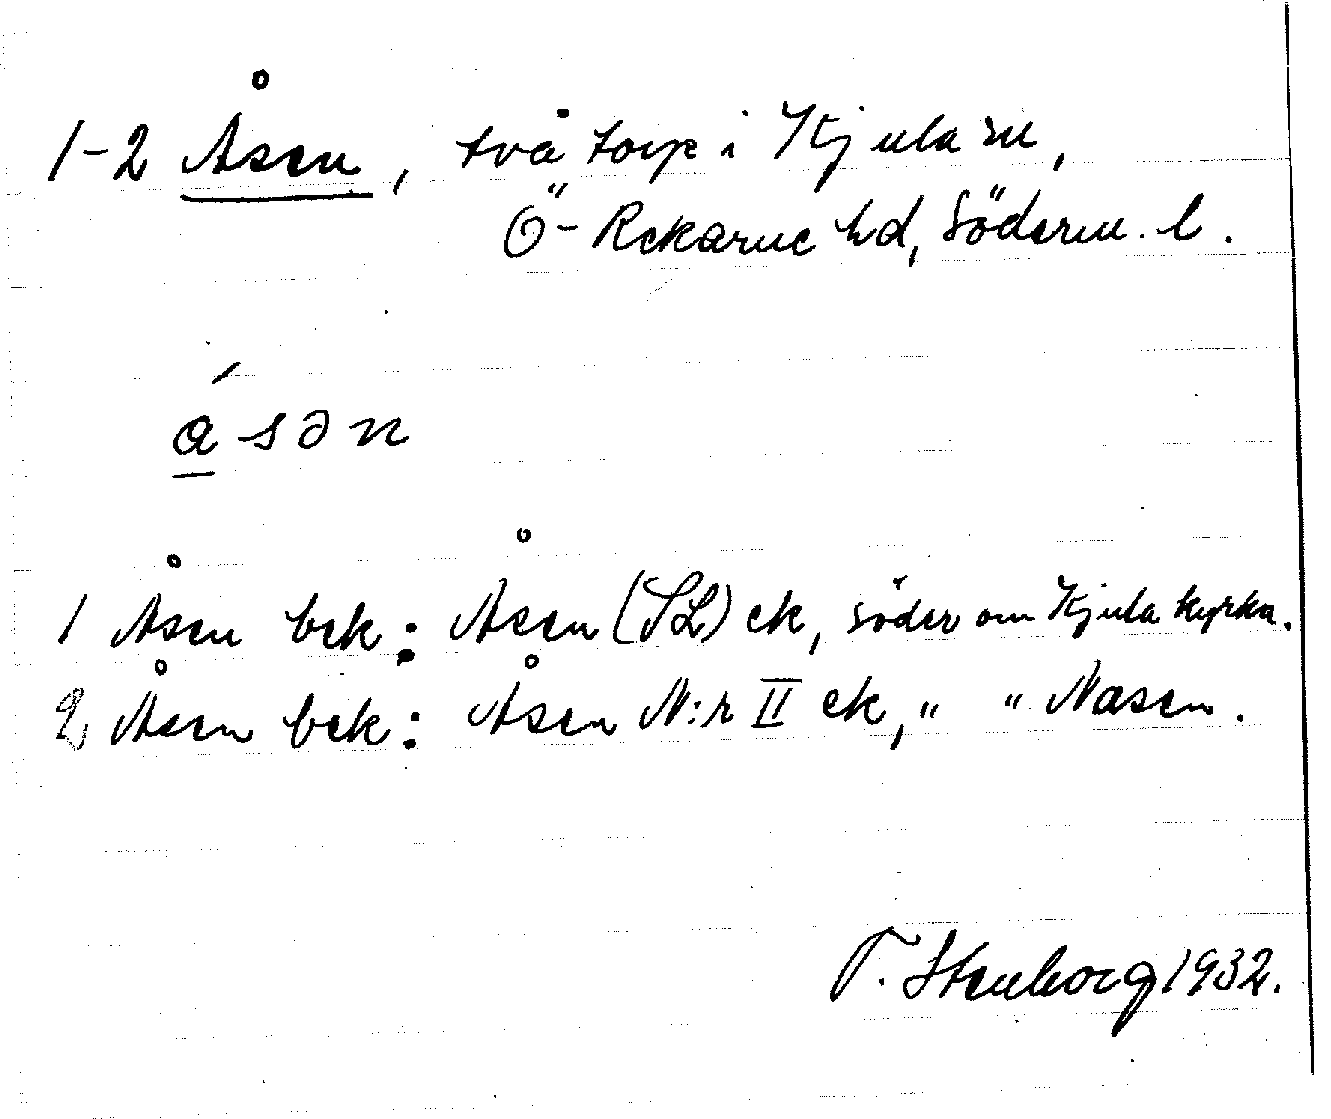 1-2 Åsen, två torp i Kjula sn,
Ö-Rekarne hd, Söderm. l.
á̲sən
1 Åsen bek: Åsen (SL) ek, söder om Kjula kyrka.
2 Åsen bek: Åsen N:r II ek, " " Näsen.
T. Stenborg 1932.